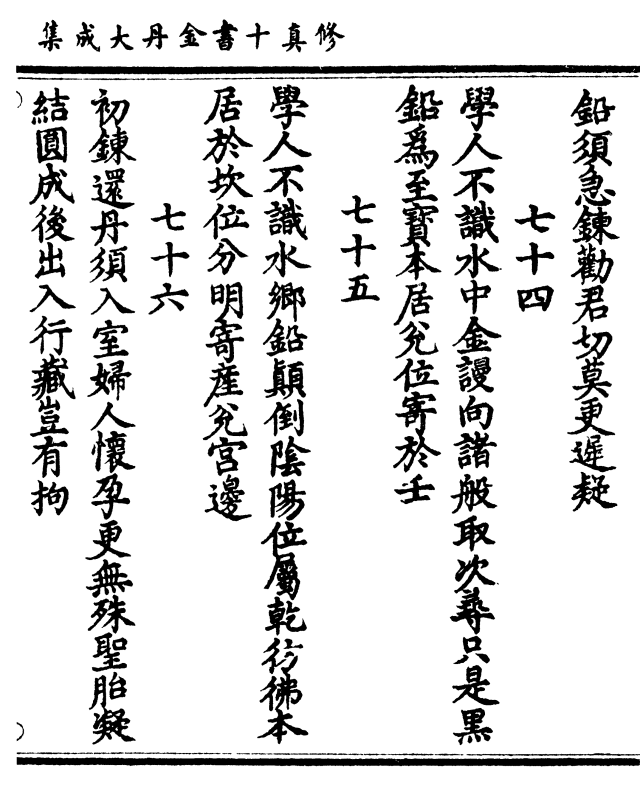 修真十書金丹大成集
鉛須急鍊勸君切莫更遲疑
七十四
學人不識水中金謾向諸般取次尋只是黑
鉛爲至寶本居兊位寄於壬
七十五
學人不識水鄉鉛顛倒陰陽位屬乾彷彿本
居於坎位分明寄産兊宮邊
七十六
初鍊還丹須入室婦人懷孕更無殊聖胎凝
結圓成後出入行藏豈有拘